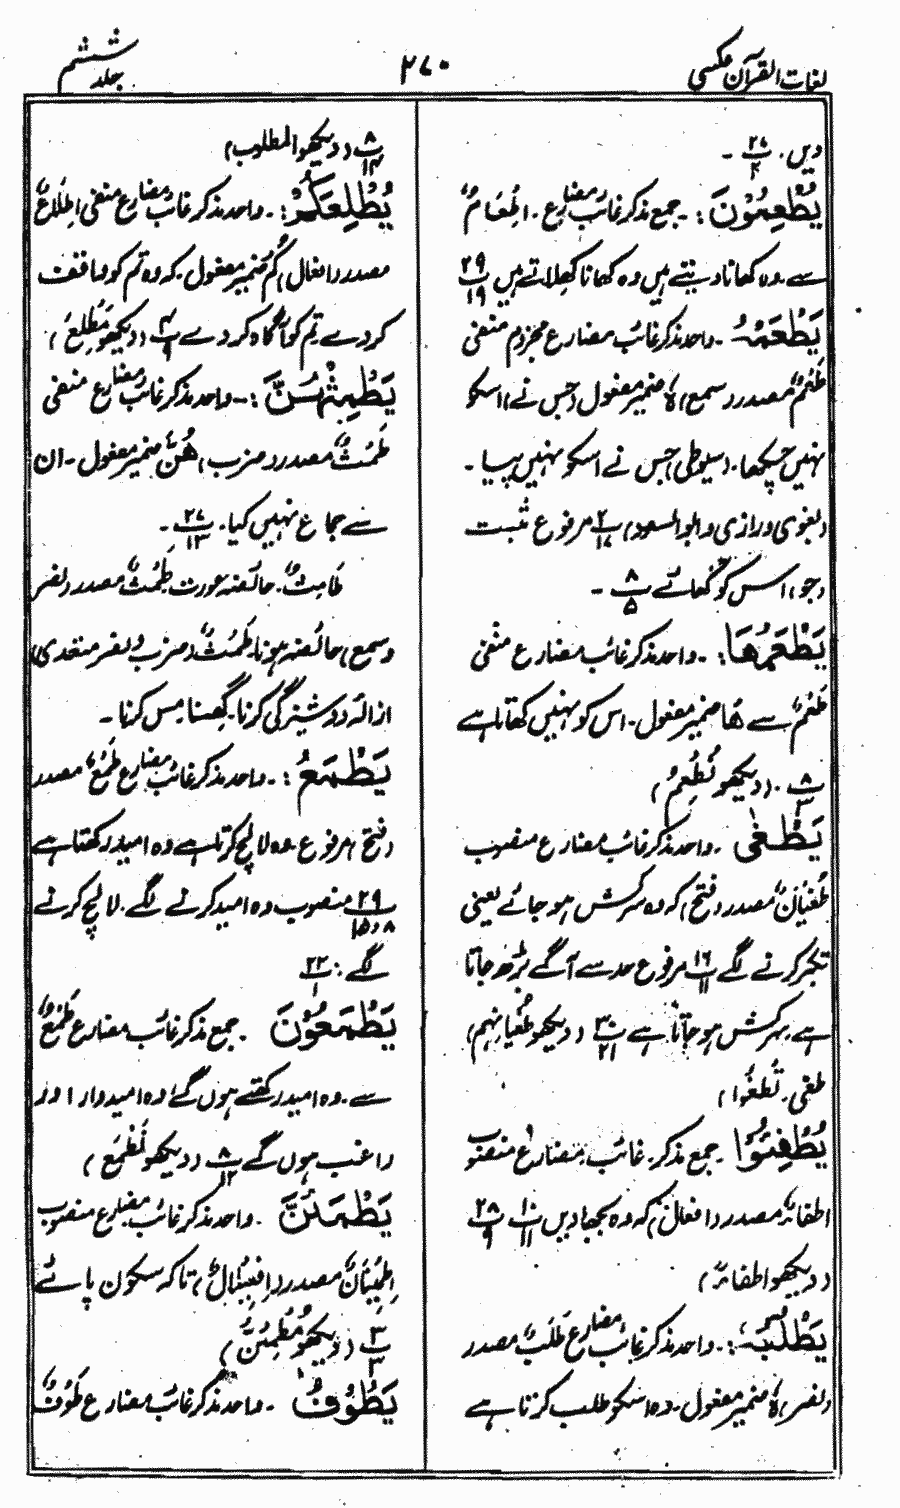 لغات القرآن عکسی
۲۷۰
جلد ششم
دیں۔ ۲۷ پ ۲ ۔
یُطْعِمُوْنَ:۔ جمع مذکر غائب مضارع۔ اِطْعَامٌ
سے۔ وہ کھانا دیتے ہیں وہ کھانا کھلاتے ہیں ۲۹ پ ۱۹
یَطْعَمْہُ ۔ واحد مذکر غائب مضارع مجزوم منفی
طَعْمٌ مصدر (سمع) ہٗ ضمیر مفعول (جس نے) اسکو
نہیں چکھا۔ (سیوطی) جس نے اسکو نہیں پیا۔
(بغوی و رازی و ابوالسعود) ۲ پ ۱۷ مرفوع مثبت
(جو) اس کو کھائے ۸ پ ۵ ۔
یَطْعَمُهَا :۔ واحد مذکر غائب مضارع منفی
طَعْمٌ سے ھَا ضمیر مفعول۔ اس کو نہیں کھاتا ہے
۸ پ ۳ ۔ (دیکھو نُطْعِمُ)
یَطْغٰی ۔ واحد مذکر غائب مضارع منصوب
طُغْیَانٌ مصدر (فتح) کہ وہ سرکش ہو جائے یعنی
تکبر کرنے لگے ۱۶ پ ۱۱ مرفوع حد سے آگے بڑھ جاتا
ہے۔ سرکش ہو جاتا ہے ۳۰ پ ۲۱ (دیکھو طُغْیَانِہِم)
طغی۔ تَطْغَوْا)
یُطْفِئُوْا ۔ جمع مذکر۔ غائب مضارع منصوب
اِطْفَاءٌ مصدر (افعال) کہ وہ بجھا دیں ۱۰ پ ۱۱ ۲۸ پ ۹
(دیکھو اطفاءٌ)
یَطْلُبُہٗ :۔ واحد مذکر غائب مضارع طَلَبٌ مصدر
(نصر) ہٗ ضمیر مفعول۔ وہ اسکو طلب کرتا ہے
۸ پ ۱۴ (دیکھو المطلوب)
یُطْلِعَکُمْ :۔ واحد مذکر غائب مضارع منفی اِطْلَاعٌ
مصدر (افعال) کُمْ ضمیر مفعول۔ کہ وہ تم کو واقف
کردے تم کو آگاہ کردے ۴ پ ۹ (دیکھو مُطَّلِعٌ)
یَطْمِثْہُنَّ :۔ واحد مذکر غائب مضارع منفی
طَمْثٌ مصدر (ضرب) ھُنَّ ضمیر مفعول۔ ان
سے جماع نہیں کیا۔ ۲۷ پ ۱۳ ۔
طَامِثٌ۔ حائضہ عورت طَمْثٌ مصدر (نصر
وسمع) حائضہ ہونا۔ طَمْثٌ (ضرب و نصر متعدی)
ازالۂ دوشیزگی کرنا۔ گھسنا مس کرنا۔
یَطْمَعُ :۔ واحد مذکر غائب مضارع طَمْعٌ مصدر
(فتح) مرفوع۔ وہ لالچ کرتا ہے وہ امید رکھتا ہے
۲۹ پ ۸،۱۵ منصوب وہ امید کرنے لگے۔ لالچ کرنے
لگے ۲۲ پ ۱ :
یَطْمَعُوْنَ ۔ جمع مذکر غائب مضارع طَمْعٌ
سے۔ وہ امید رکھتے ہوں گے وہ امیدوار اور
راغب ہوں گے ۸ پ ۱۲ (دیکھو نَطْمَعُ)
یَطْمَئِنَّ ۔ واحد مذکر غائب مضارع منصوب
اِطْمِیْنَانٌ مصدر (اِفْعِیْلَالٌ) تاکہ سکون پائے
۳ پ ۳ (دیکھو مُطْمَئِنٌّ)
یَطُوْفُ ۔ واحد مذکر غائب مضارع طَوْفٌ